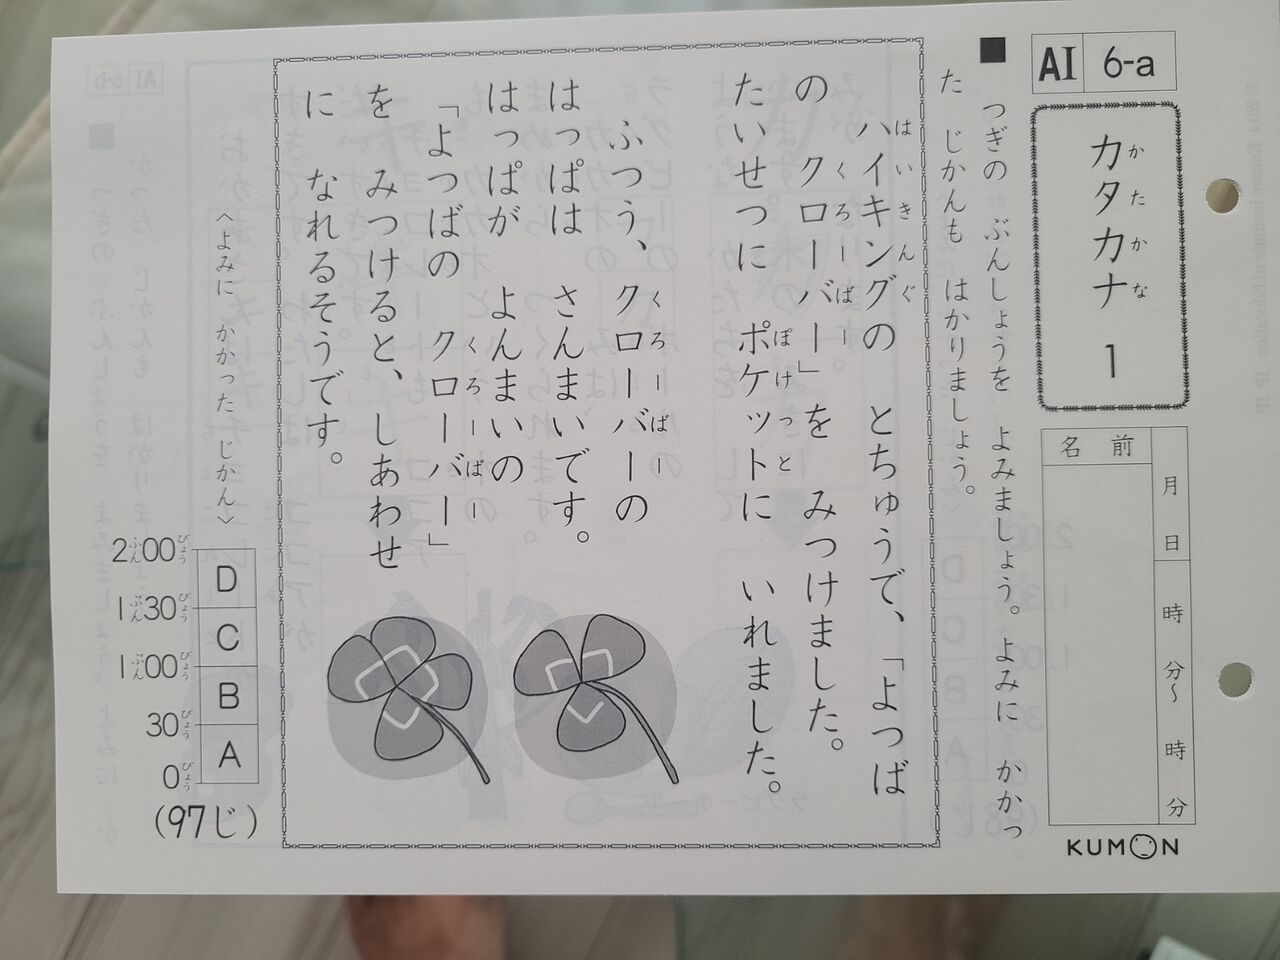 AI 6-a
カタカナ 1
かたかな
月 日 時 分～ 時 分
名前
KUMON
■ つぎの ぶんしょうを よみましょう。よみに かかっ
た じかんも はかりましょう。
ハイキングの とちゅうで、「よつば
はいきんぐ
の クローバー」を みつけました。
くろーばー
たいせつに ポケットに いれました。
ぽけっと
ふつう、クローバーの
くろーばー
はっぱは さんまいです。
はっぱが よんまいの
「よつばの クローバー」
くろーばー
を みつけると、しあわせ
に なれるそうです。
〈よみに かかった じかん〉
2ぷん00びょう
D
1ぷん30びょう
C
1ぷん00びょう
B
30びょう
A
0びょう
(97じ)